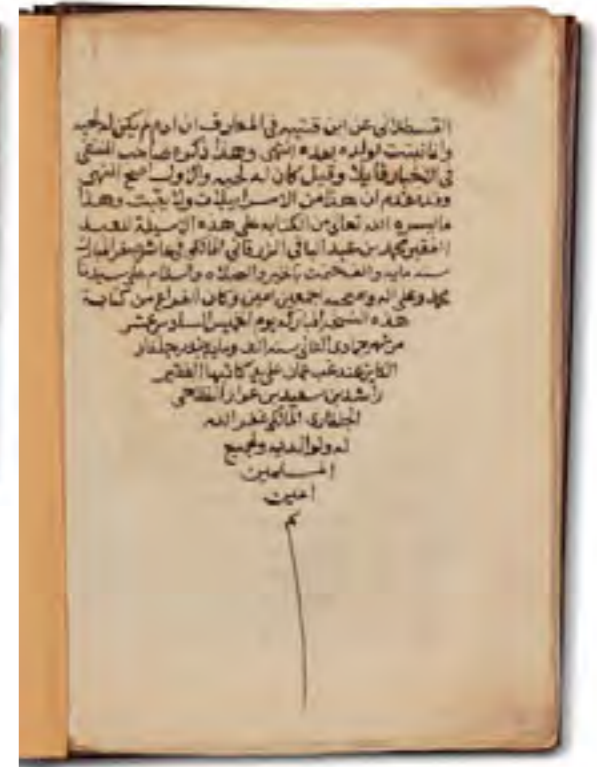 القسطلانى عن ابن قتيبه فى المعارف ان ادم لم يكن له لحيه
وانما نبتت لولده بعده انتهى وهذا ذكره صاحب
فى قايلا وقيل كان له لحيه والاول اصح انتهى
وقد تقدم ان هذا من الاسرايليات ولا يثبت وهذا
ما يسره الله تعالى من الكتابه على هذه الاسيلة للعبد
الفقير محمد بن عبد الباقى الزرقانى المالكى فى عاشر صفر
سنه مايه والف ختمت بالخير والصلاه والسلام على سيدنا
محمد وعلى اله وصحبه اجمعين امين وكان الفراغ من كتابة
هذه النسخه المباركه يوم الخميس السادس عشر
من شهر جمادى الثانى سنه الف ومايه جلفار
الكاين عند غب عمان على يد كاتبها الفقير
راشد بن سعيد بن
الجلفارى المالكى غفر الله
له ولوالديه ولجميع
المسلمين
امين
م